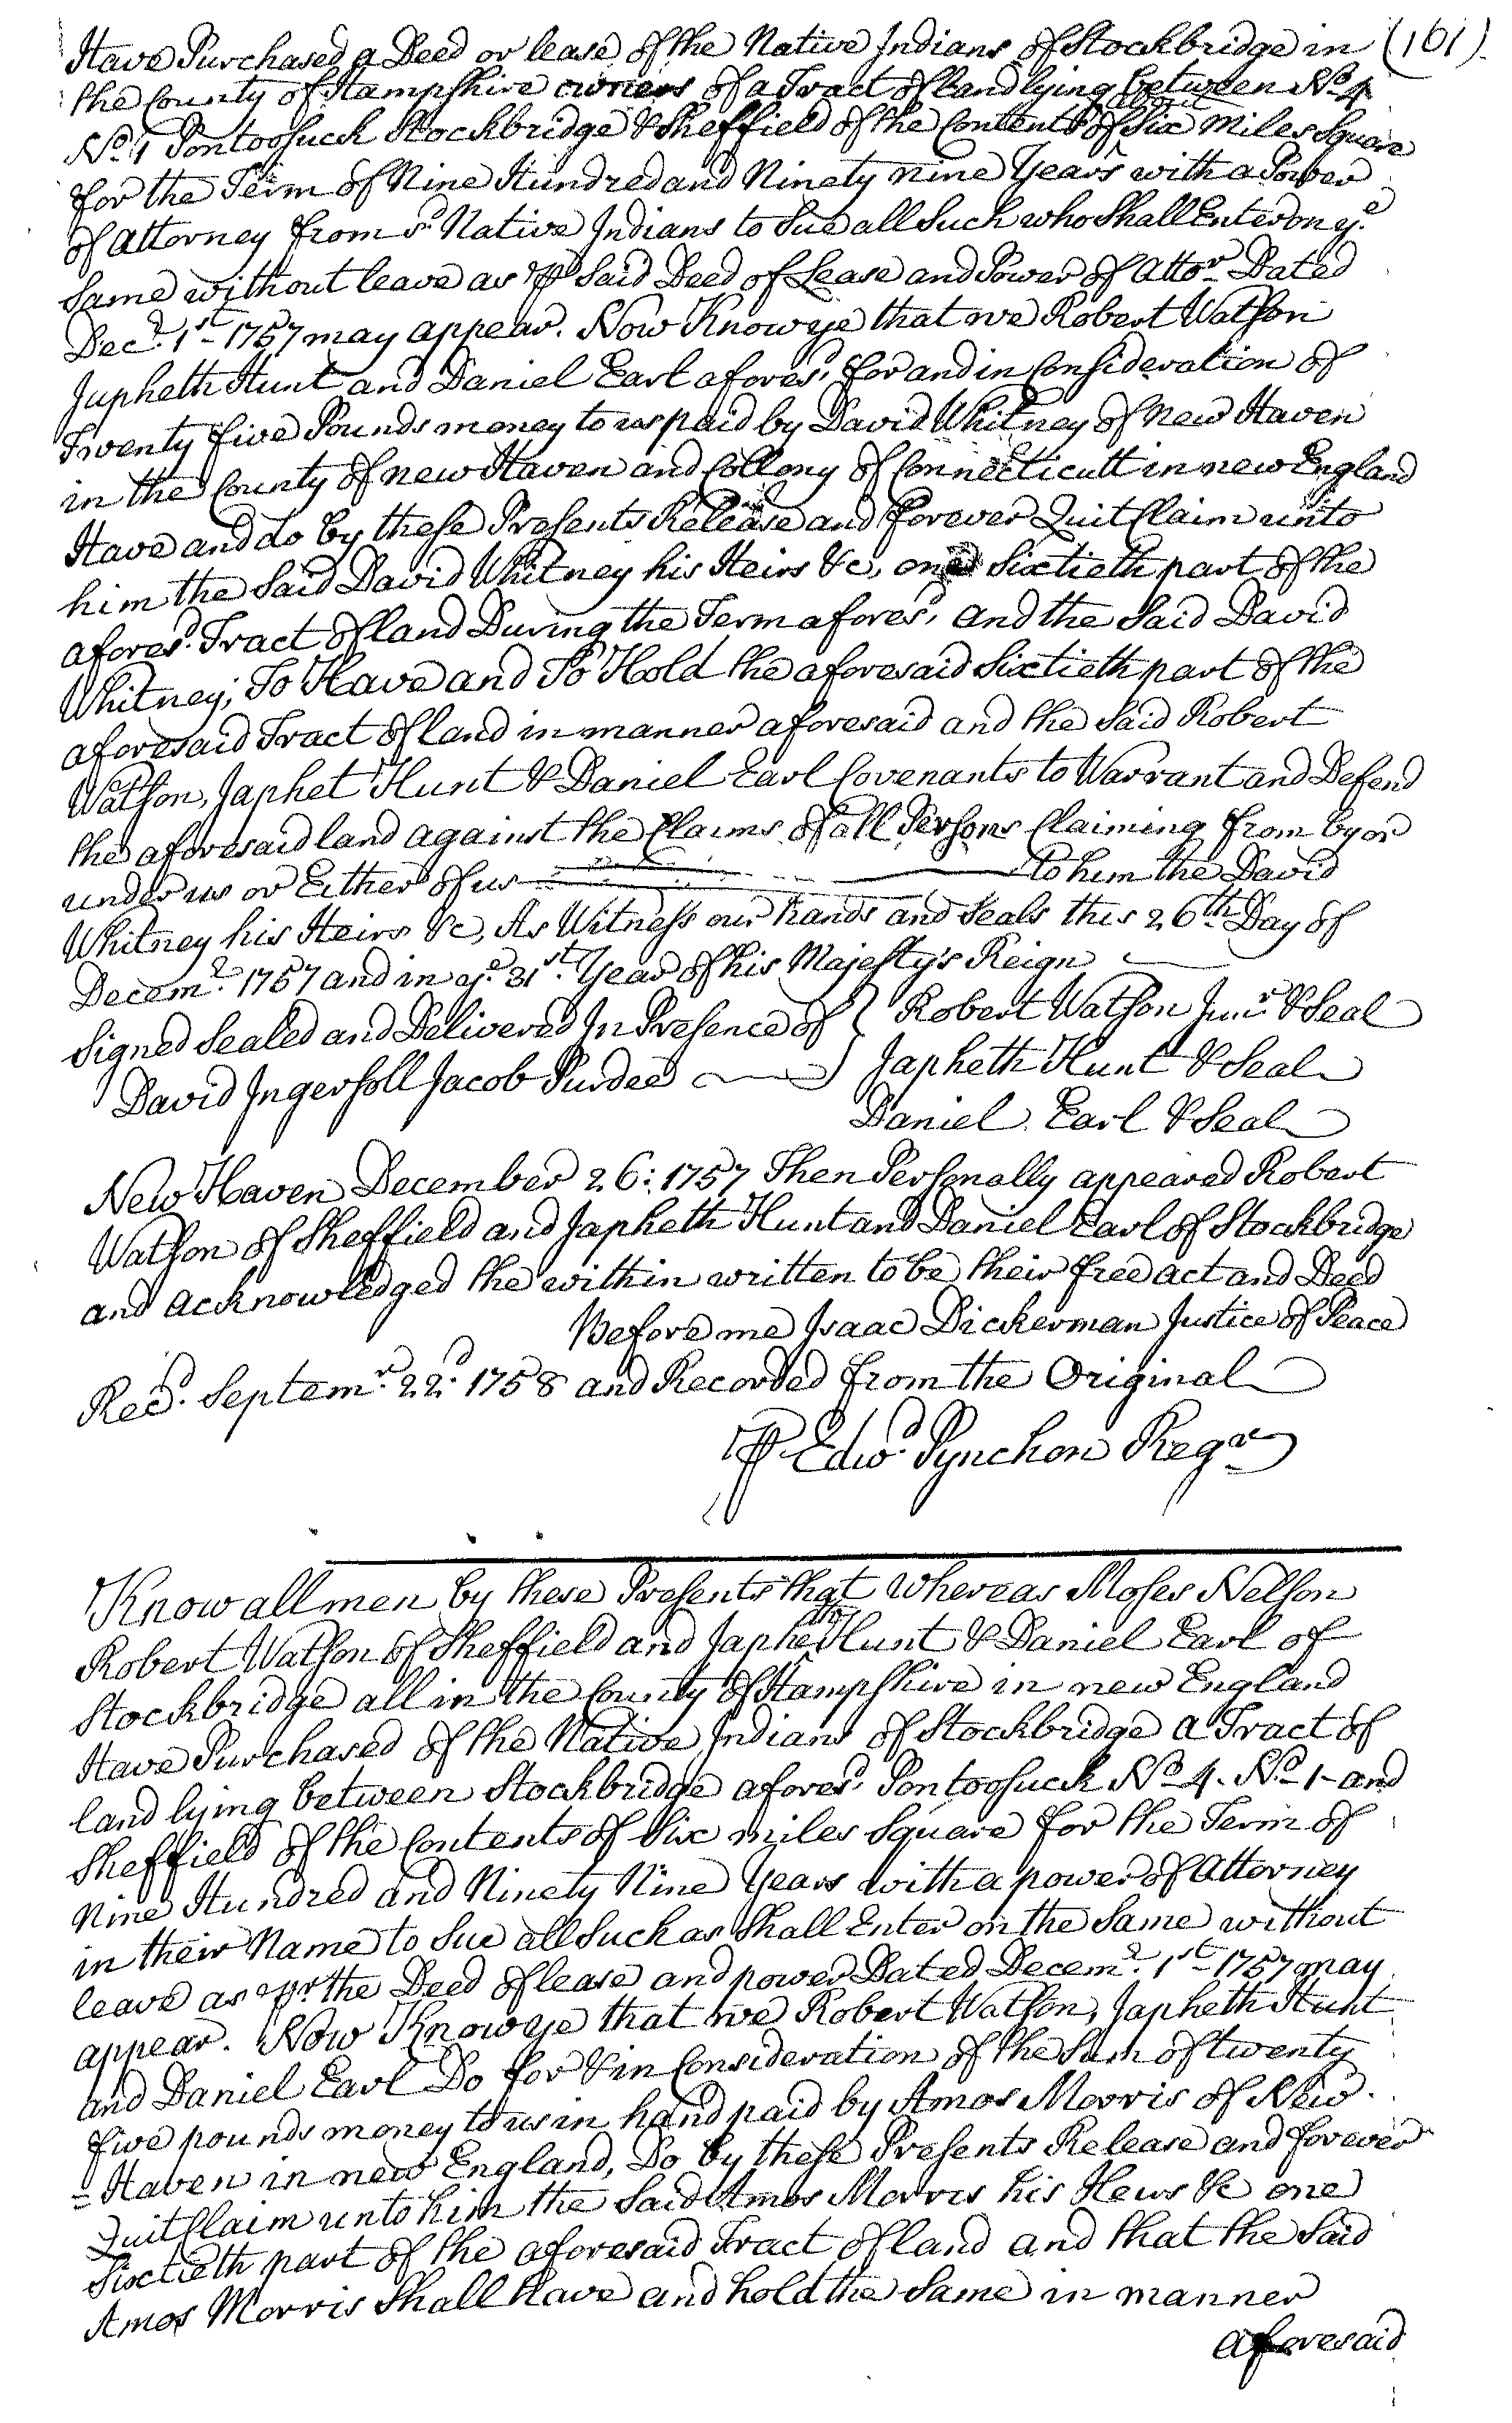 Have Purchased a Deed or lease of the Native Indians of Stockbridge in (161)
the County of Hampshire owners of a Tract of Land lying between No. 4
No. 1 Pontoosuck Stockbridge & Sheffield of the Contents of Six Miles Square
for the Term of Nine Hundred and Ninety nine Years with a Power
of Attorney from sd. Native Indians to Sue all Such who Shall Enter on ye.
Same without leave as ⅌ Said Deed of Lease and Power of Attor. Dated
Decr. 1st. 1757 may appear. Now Know ye that we Robert Watson
Japheth Hunt and Daniel Earl aforesd. for and in Consideration of
Twenty five Pounds money to us paid by David Whitney of New Haven
in the County of new Haven and Collony of Connecticutt in new England
Have and do by these Presents Release and forever Quit Claim unto
him the Said David Whitney his Heirs &c, one Sixtieth part of the
aforesd. Tract of land During the Term aforesd, and the Said David
Whitney; To Have and To Hold the aforesaid Sixtieth part of the
aforesaid Tract of land in manner aforesaid and the Said Robert
Watson, Japhet Hunt & Daniel Earl Covenants to Warrant and Defend
the aforesaid land against the Claims of all Persons Claiming from by or
under us or Either of us to him the David
Whitney his Heirs &c, As Witness our hands and Seals this 26th Day of
Decemr. 1757 and in ye. 31st. Year of his Majesty's Reign
Signed Sealed and Delivered In Presence of } Robert Watson Junr. & Seal
David Ingersoll Jacob Purdee } Japheth Hunt & Seal
Daniel Earl & Seal
New Haven December 26: 1757 Then Personally appeared Robert
Watson of Sheffield and Japheth Hunt and Daniel Earl of Stockbridge
and acknowledged the within written to be their free act and Deed
Before me Isaac Dickerman Justice of Peace
Recd. Septemr. 22d. 1758 and Recorded from the Original
⅌ Edwd. Pynchon Regr
Know all men by these Presents that whereas Moses Nelson
Robert Watson of Sheffield and Japheth Hunt & Daniel Earl of
Stockbridge all in the County of Hampshire in new England
Have Purchased of the Native Indians of Stockbridge a Tract of
land lying between Stockbridge aforesd. Pontoosuck No. 4. No. 1 - and
Sheffield of the Contents of Six miles Square for the Term of
Nine Hundred and Ninety Nine Years with a power of Attorney
in their Name to Sue all Such as Shall Enter on the Same without
leave as pr the Deed of lease and power Dated Decemr. 1st 1757 may
appear. Now Know ye that we Robert Watson, Japheth Hunt
and Daniel Earl Do for & in Consideration of the Sum of twenty
five pounds money to us in hand paid by Amos Morris of New
= Haven in new England, Do by these Presents Release and forever
Quit Claim unto him the Said Amos Morris his Heirs &c one
Sixtieth part of the aforesaid Tract of land and that the Said
Amos Morris Shall Have and hold the Same in manner
aforesaid